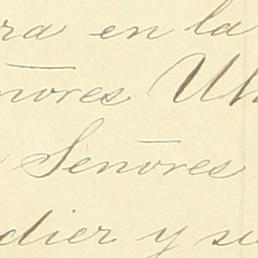 ra en la
ñores Uh
Señores
dier y su